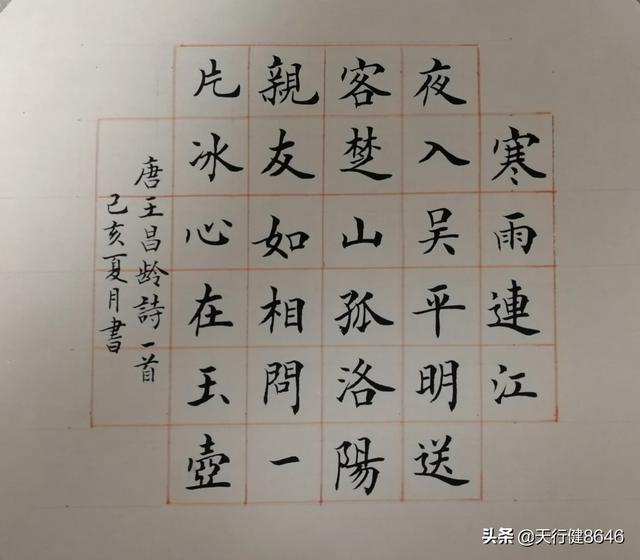 寒雨連江
夜入吴平明送
客楚山孤洛陽
親友如相問一
片冰心在玉壺
唐王昌龄詩一首
己亥夏月書
头条@天行健8646